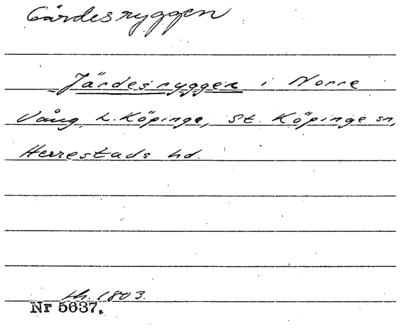 Gärdesryggen
Järdesryggen i Norre
Vång, L. Köpinge, St. Köpinge sn,
Herrestads hd.
1803.
Nr 5637.